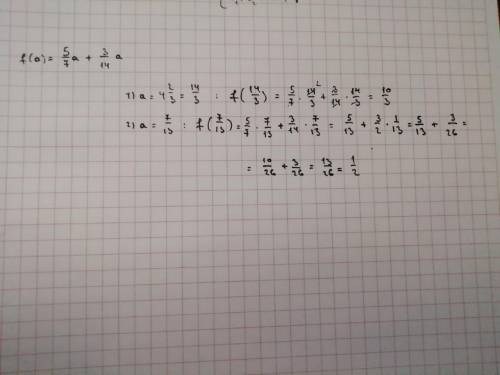 f(a) = 5/7 a + 3/14 a
1) a = 4 2/3 = 14/3 : f(14/3) = 5/7 · 14/3 + 3/14 · 14/3 = 10/3
2) a = 7/13 : f(7/13) = 5/7 · 7/13 + 3/14 · 7/13 = 5/13 + 3/2 · 1/13 = 5/13 + 3/26 =
= 10/26 + 3/26 = 13/26 = 1/2